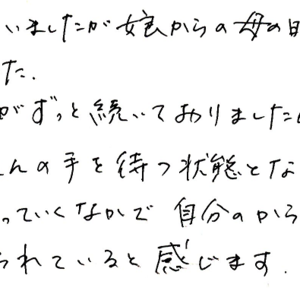 いましたが娘からの母の日
た.
がずっと続いておりました
んの手を待つ状態とな
っていくなかで 自分のから
られていると感じます.